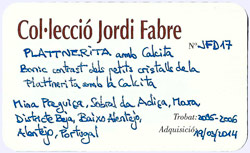 Col·lecció Jordi Fabre
PLATTNERITA amb Calcita Nº JFD17
Bonic contrast dels petits cristalls de la
Plattnerita amb la Calcita
Mina Preguiça, Sobral da Adiça, Moura,
Districte Beja, Baixo Alentejo, Trobat: 2005-2006
Alentejo, Portugal Adquisició: 19/03/2014